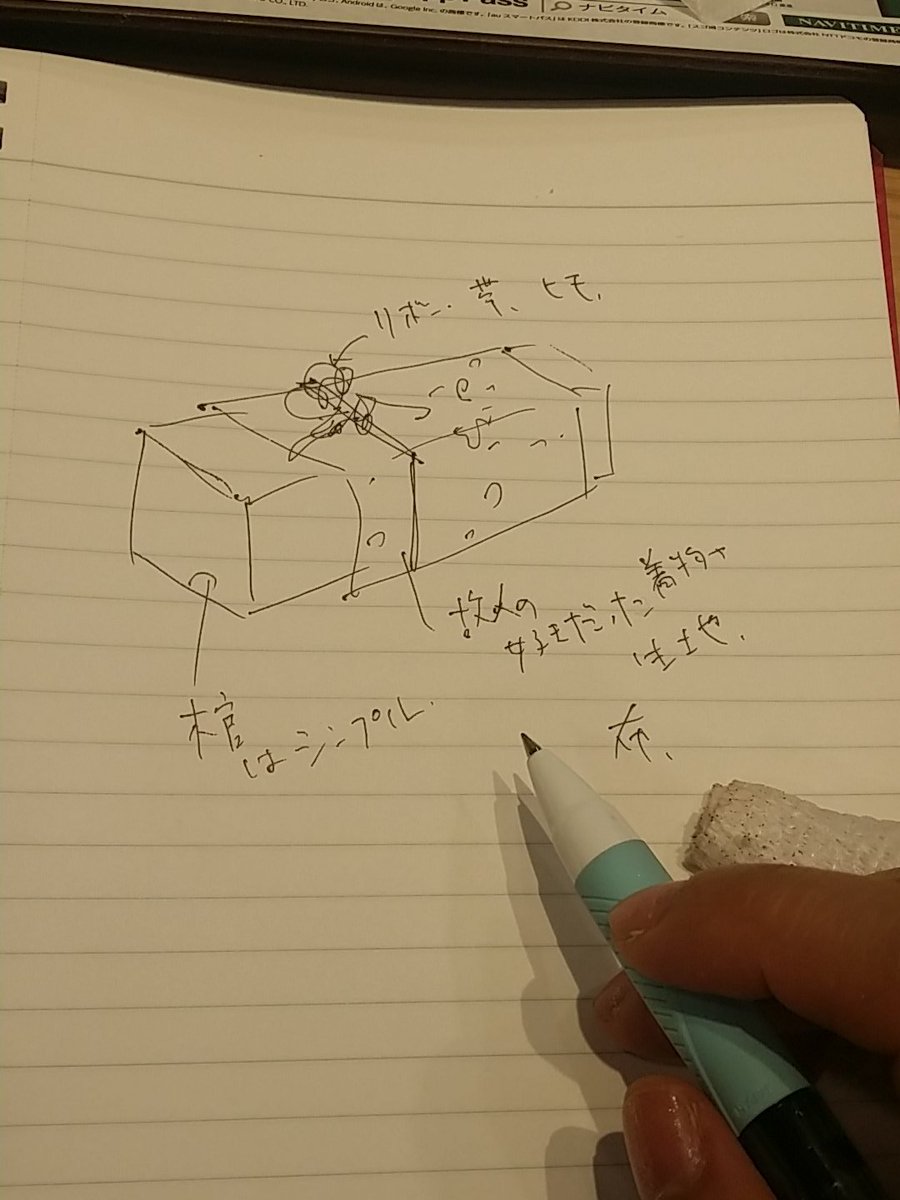 CO., LTD.
Pass
ナビタイム
NAVITIME
Androidは、Google Inc. の商標です。「auスマートパス」は KDDI 株式会社の登録商標です。
リボン・帯、ヒモ、
故人の
好きだった着物や
生地や、
布、
棺
はシンプル